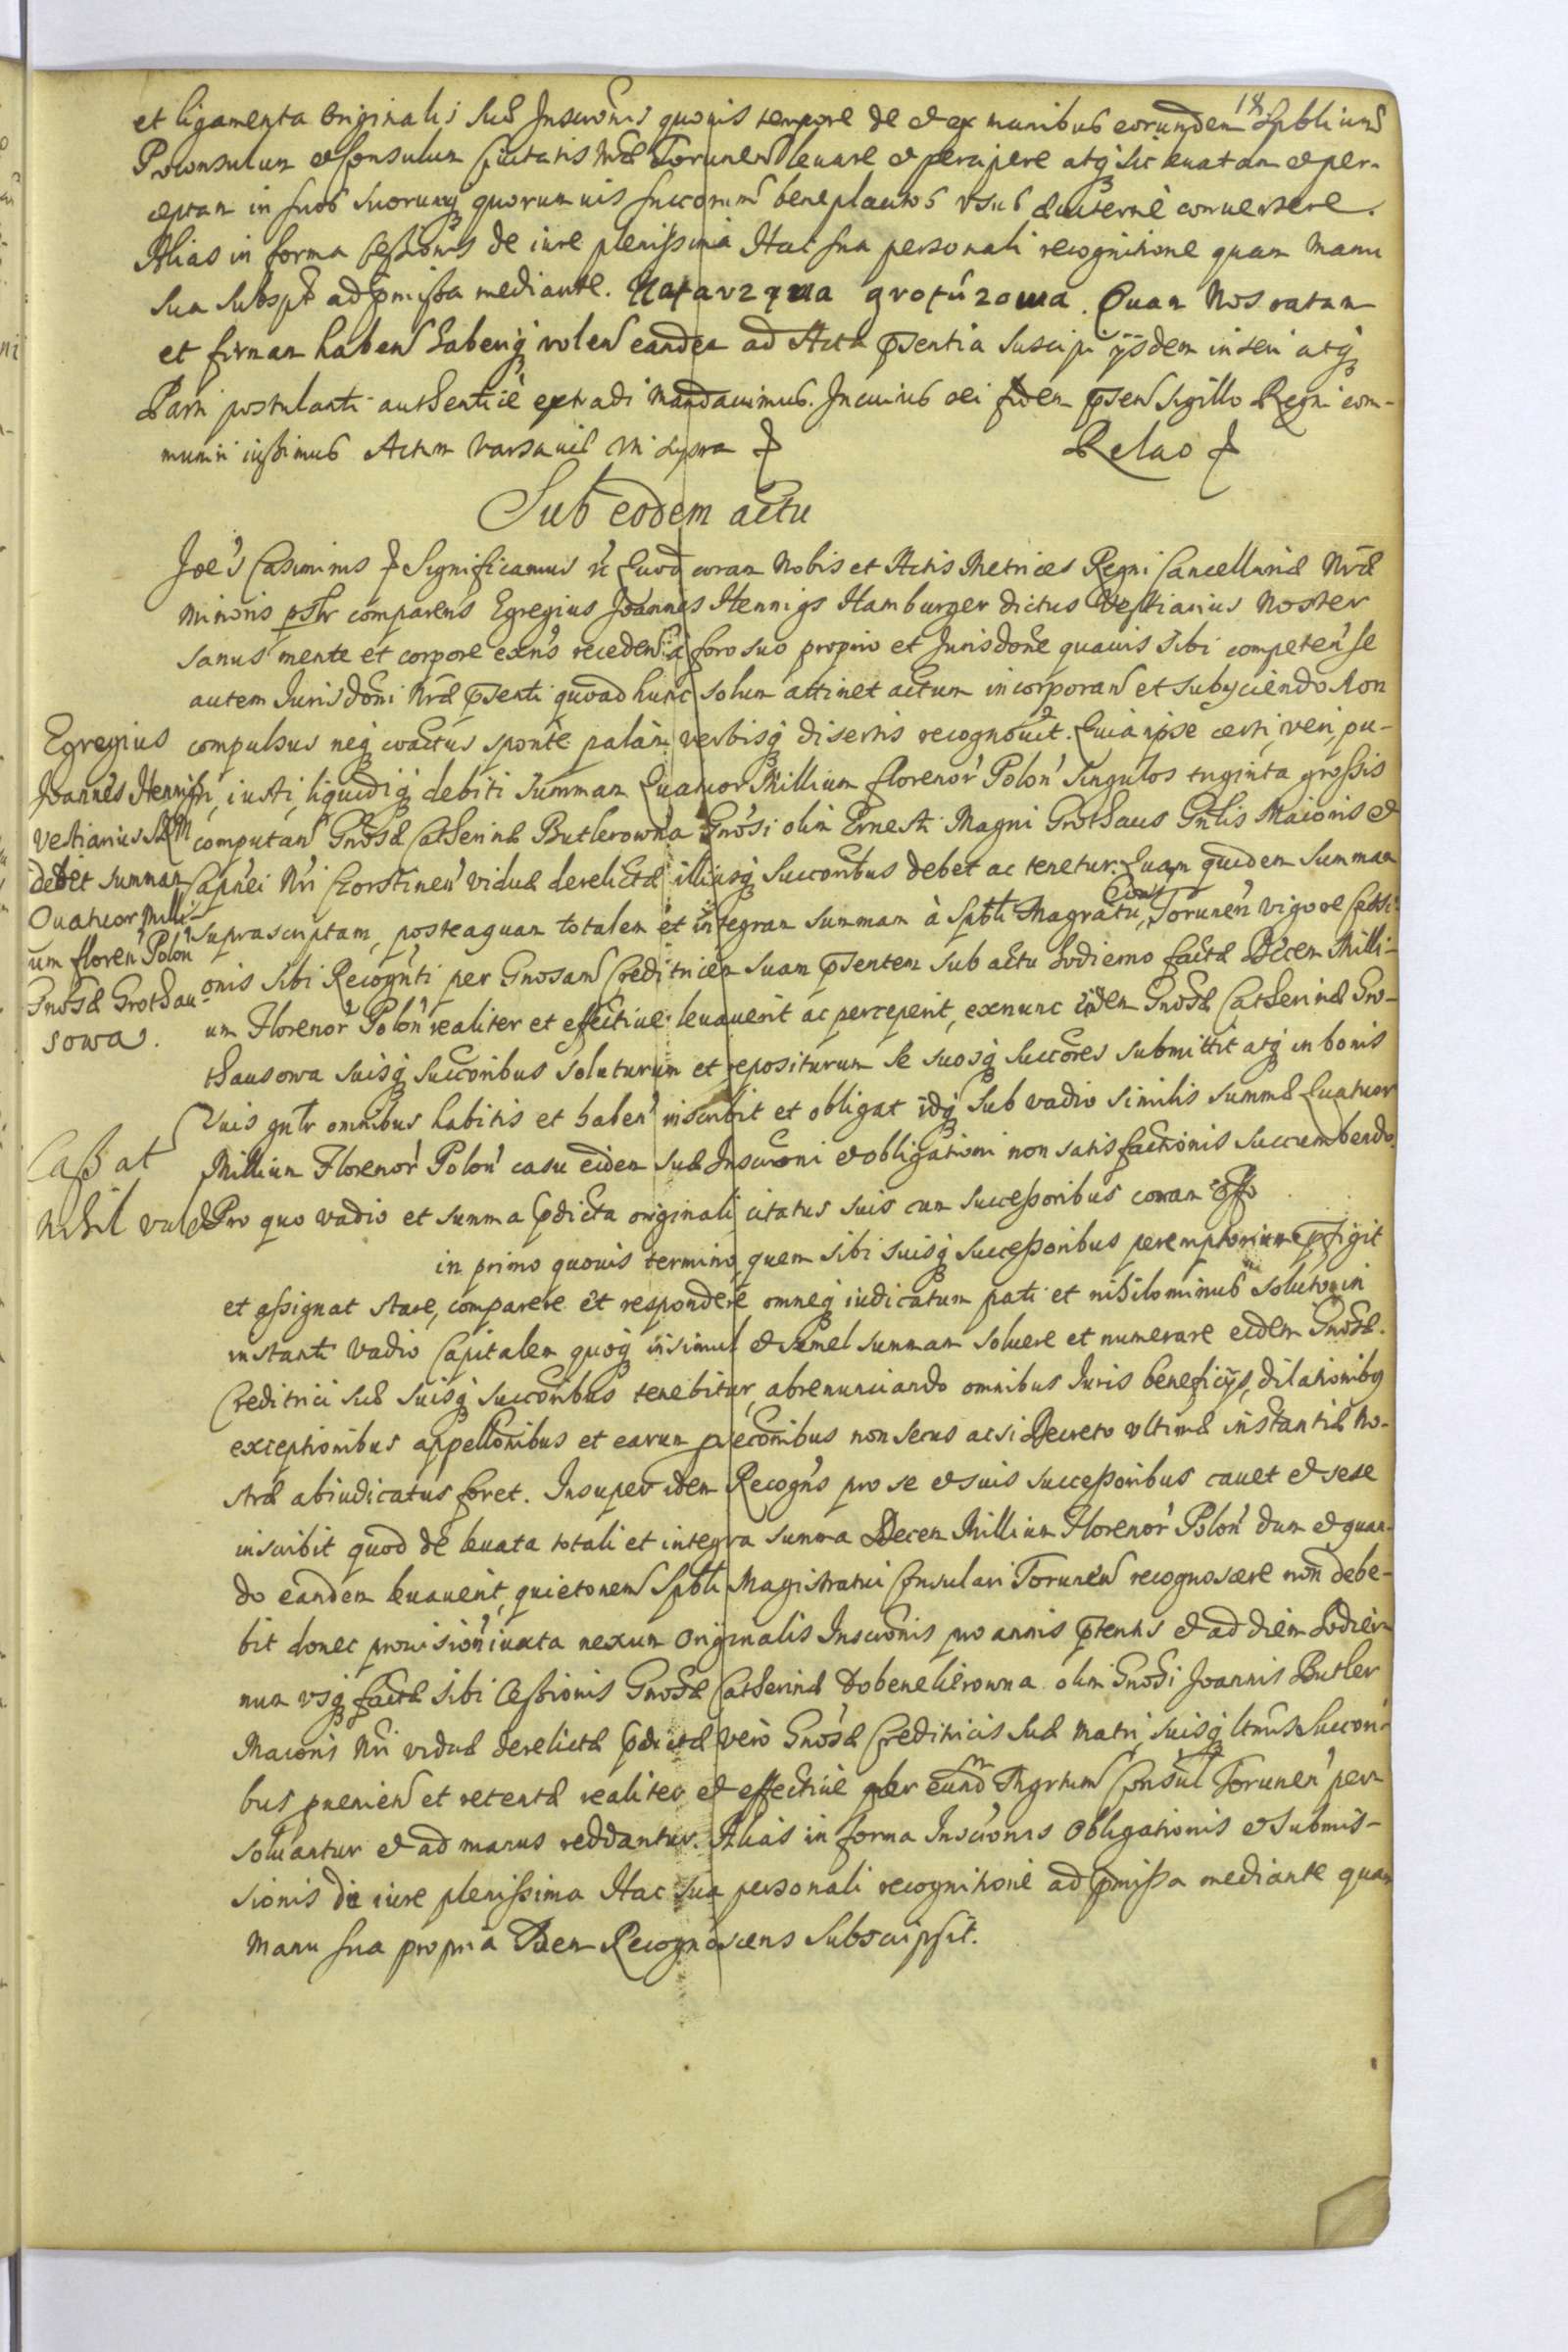 18
et ligamenta originalis suæ Inscrõnis quouis tempore de et ex manibus eorundem Spbliũ
Proconsulum et Consulum Ciuitatis nr̃æ Torunen̄ leuare et percipere atq̨ sic leuatam et per-
ceptam in suos suorumq̨ quorumuis succorum̄ beneplacitos vsus æuiternè conuertere.
Alias in forma Cessionis de iure plenissima Hac sua personali recognitione quam manu
sua subsp̄t ad p̃missa mediante. Katarzyna grotúzowa. Quam Nos ratam
et firmam haben̄ haberiq̨ volen̄ eandem ad Acta p̃sentia suscipi ijsdem inseri atq̨
Parti postulanti authenticè extradi mandauimus. In cuius rei fidem p̃sen̄ sigillo Regni com-
muniri iussimus Actum Varsauiæ vti supra
Relao
Sub eodem actu
Joẽs Casimirus Significamus &c Quod coram Nobis et Actis Metrices Regni Cancellariæ Nr̃æ
Minoris psl̃r comparens Egregius Joannes Hennigs Hamburger dictus Vestiarius Noster
sanus mente et corpore exñs recedens à foro suo proprio et Jurisdõne quauis sibi competen̄ se
autem Jurisdõni Nr̃æ p̃senti quoad hunc solum attinet actum incorporan̄ et subijciendo Non
compulsus neq̨ coactus, sponte palàm verbisq̨ disertis recognouit. Quia ipse certi, veri, pu-
ri, iusti, liquidiq̨ debiti summam Quatuor Millium florenor' Polon' singulos triginta grossis
computan̄ Gnõsæ Catherinæ Butlerowna Gnõsi olim Ernesti Magni Grothaus Gñlis Maioris et
Capñei Nr̃i Czorstinen̄ viduæ derelictæ illiusq̨ succoribus debet ac tenetur. Quam quidem summam
suprascriptam, posteaquam totalem et integram summam à Spbli Magratu, Cons Torunen̄ vigore Cessi-
onis sibi Recogñti per Gnosam Creditricem suam p̃sentem sub actu hodierno factæ Decem Milli-
um Florenor' Polon' realiter et effectiue leuauerit ac perceperit, exnunc eidem Gnõsæ Catherinæ Gro-
thausowa suisq̨ succoribus soluturum et repositurum se suosq̨ succores submittit atq̨ in bonis
suis gñlr omnibus habitis et haben̄ inscribit et obligat idq̨ sub vadio similis summæ Quatuor
Millium Florenor' Polon' casu eidem suæ Inscrõni et obligationi non satisfactionis succumbendo.
Pro quo vadio et summa p̃dicta originali citatus suis cum successoribus coram offo
in primo quouis termino, quem sibi suisq̨ successoribus peremptorium p̃figit
et assignat stare, comparere et respondere omneq̨ iudicatum pati et nihilominus soluto in
instanti vadio Capitalem quoq̨ insimul et semel summam soluere et numerare eidem Gnõsæ
Creditrici suæ suisq̨ succoribus tenebitur, abrenunciando omnibus Iuris beneficijs, dilationibus
exceptionibus appellõnibus et earum p̃secõnibus non secus acsi Decreto vltimæ instantiæ No-
stræ abiudicatus foret. Insuper idem Recogñs pro se et suis successoribus cauet et sese
inscribit quod de leuata totali et integra summa Decem Millium Florenor' Polon' dum et quan-
do eandem leuauerit, quietonem Spbli Magistratui Consulari Torunen̄ recognoscere non debe-
bit donec prouision' iuxta nexum originalis Inscrõnis pro annis p̃teritis et ad diem hodier-
num vsq̨ factæ sibi Cessionis Gnõsæ Catherinæ Dobenelierowna olim Gnõsi Joannis Butler
Maioris Nr̃i viduæ derelictæ p̃dictæ verò Gnõsæ Creditricis suæ Matri, suisq̨ ltmis succori-
bus p̃uenien̄ et retentæ realiter et effectiuè per eund̄ Mgrtum Consul' Torunen' per-
soluantur et ad manus reddantur. Alias in forma Inscrõnis obligationis et submis-
sionis de iure plenissima Hac sua personali recognitione ad p̃missa mediante quam
manu sua propria Idem Recognoscens subscripsit.
Egregius
Joannes Hennigs
Vestiarius SRM
debet summam
Quatuor Milli-
um floren' Polon'
Gnõsæ Grothau-
sowa.
Cassat
nihil valet